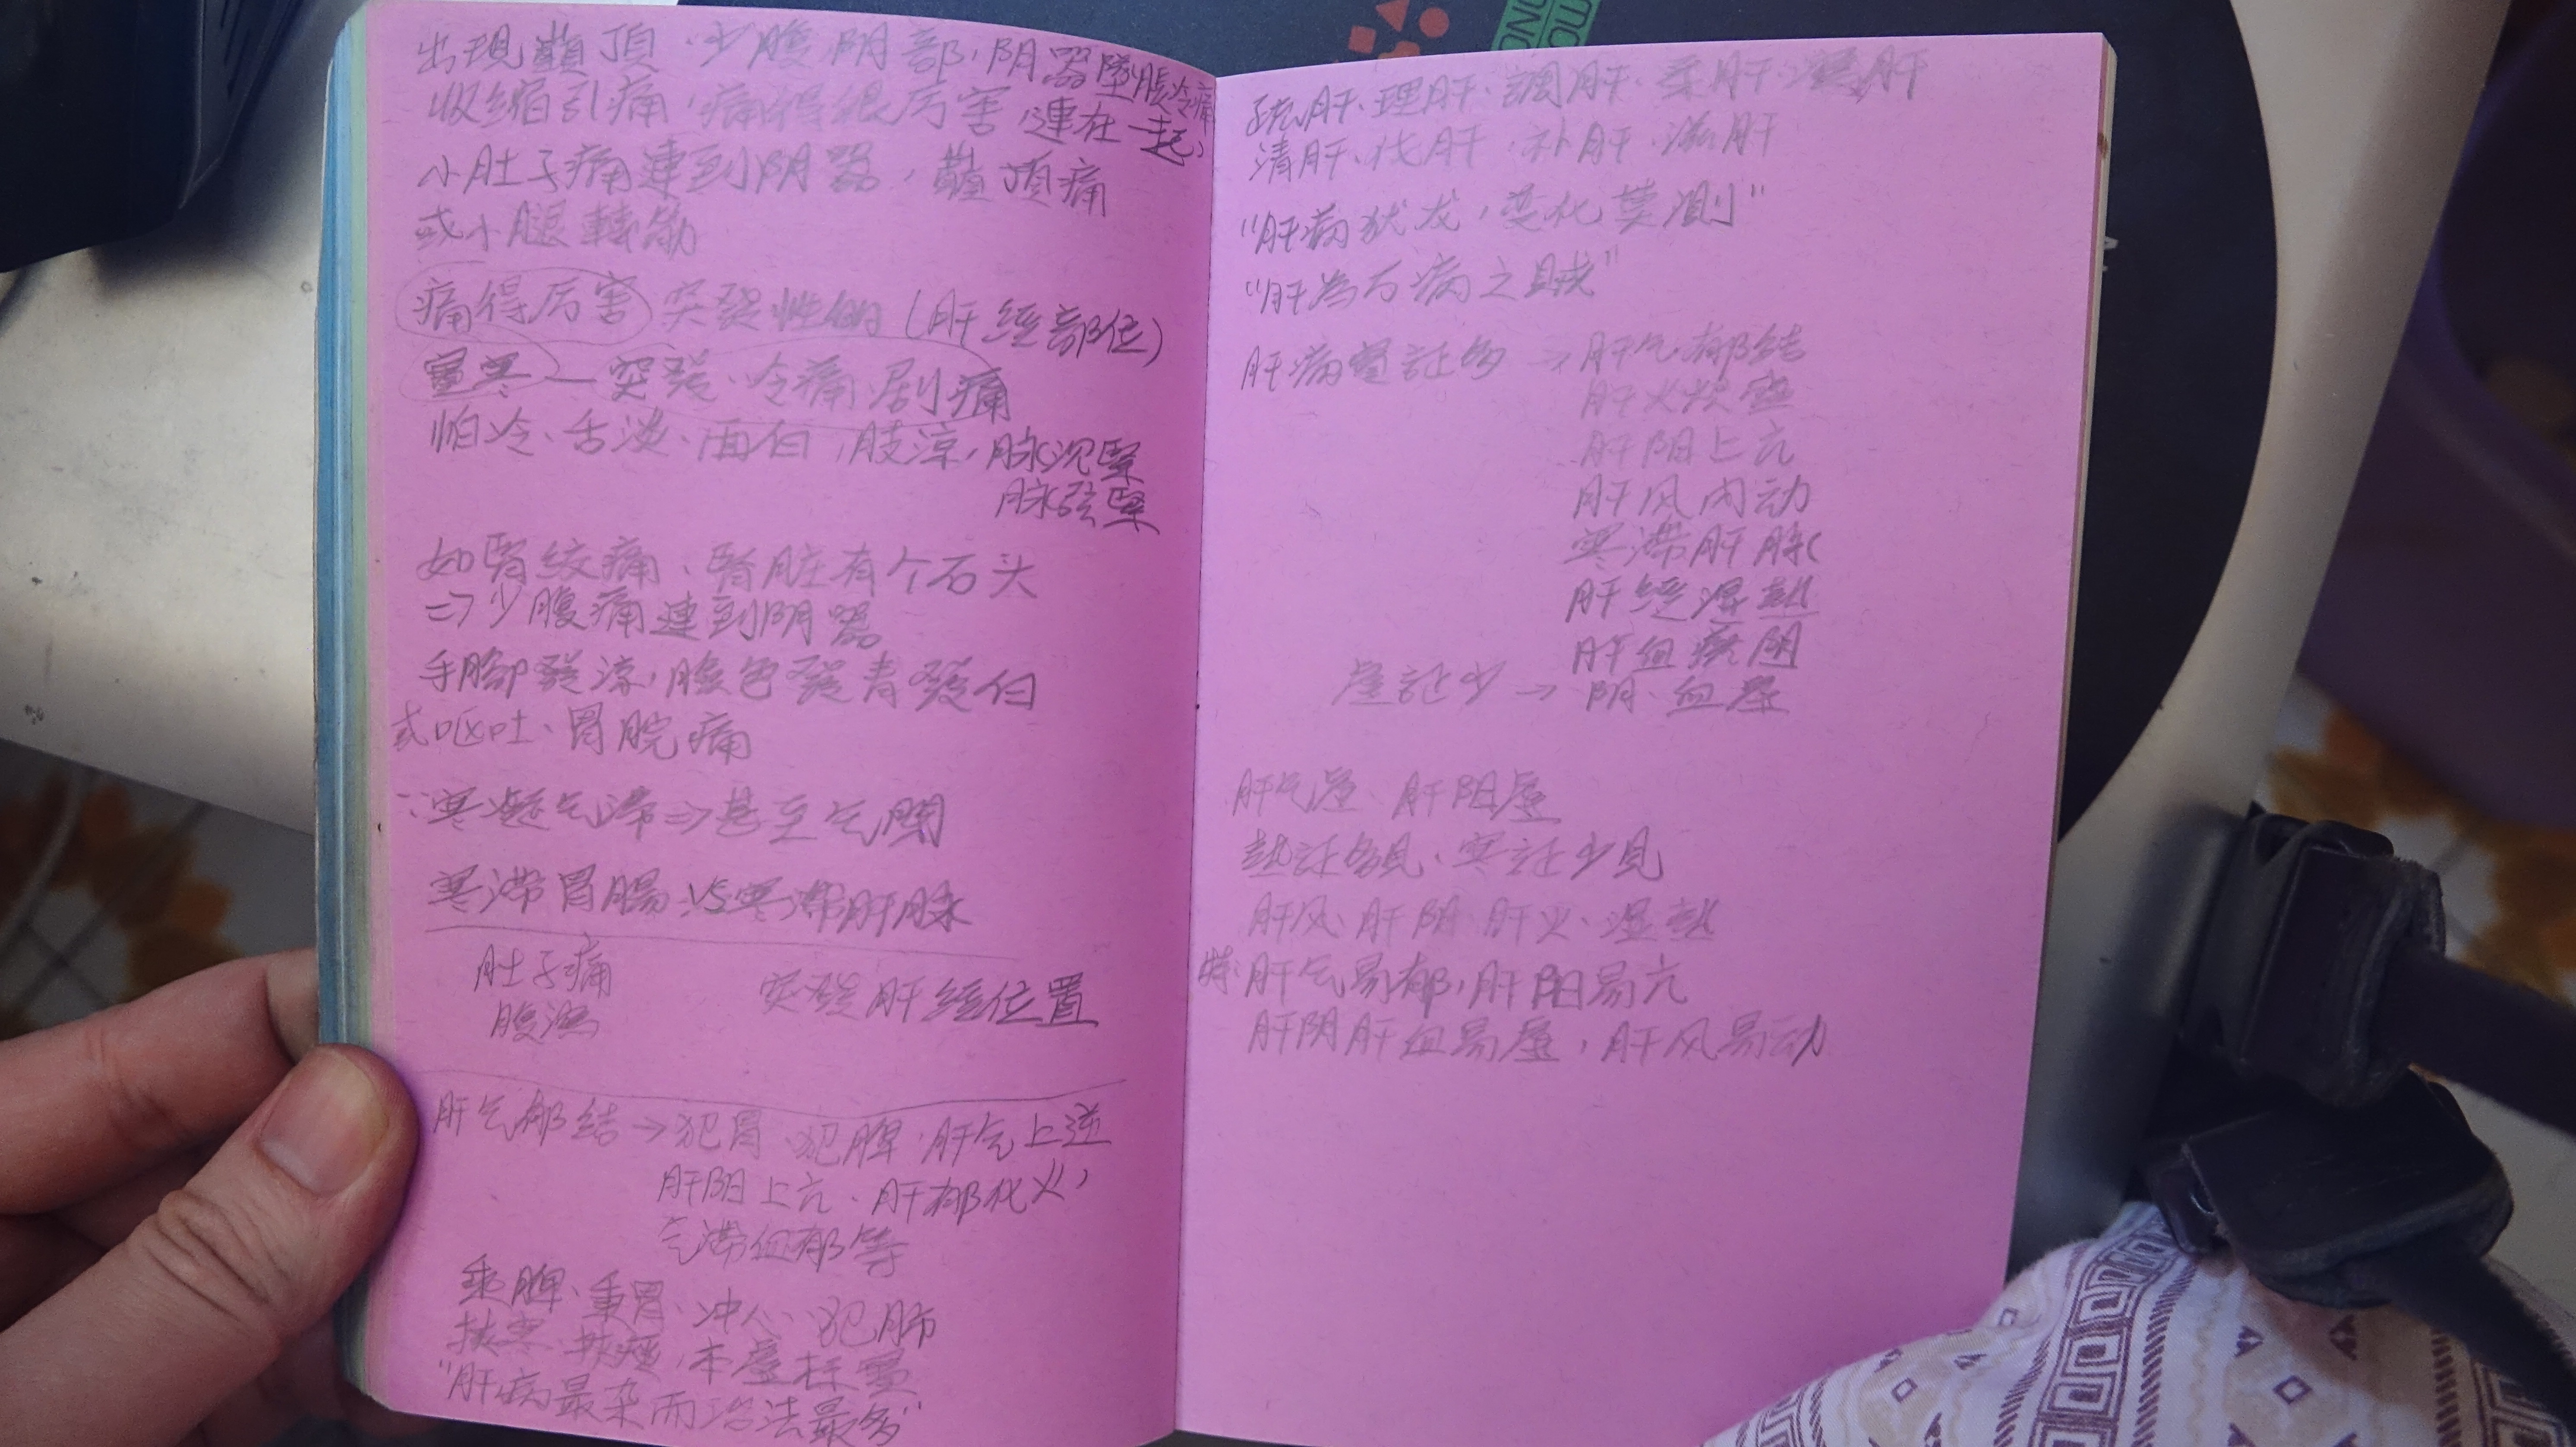 出現巔頂、少腹阴部,阴器墜脹冷痛
收缩引痛,痛得很厉害,連在一起,
小肚子痛連到阴器,巔顶痛
或小腿轉筋
痛得厉害 突發性的(肝經部位)
實寒—突發、冷痛 剧痛
怕冷、舌淡、面白,肢凉,脉沉緊
脉弦緊
如腎绞痛、腎脏有个石头
=>少腹痛連到阴器
手腳發凉,臉色發青發白
或呕吐、胃脘痛
∵寒凝气滞=>甚至气閉
寒滞胃腸 VS 寒滞肝脉
肚子痛
腹瀉
突發肝經位置
肝气郁结→犯胃、犯脾、肝气上逆
肝阳上亢、肝郁化火,
气滞血郁等
乘脾、乘胃、冲心、犯肺
挾寒、挾痰,本虛标實
"肝病最杂而治法最多"
疏肝、理肝、調肝、柔肝、肝
清肝、伐肝、补肝、滋肝
"肝病犹龙,变化莫測"
"肝為万病之贼"
肝病實証多→肝气郁结
肝火炽盛
肝阳上亢
肝风内动
寒滞肝脉
肝經湿熱
肝血瘀阴
虛証少→阴、血虛
肝气虛、肝阳虛
熱証多見、寒证少見
肝风、肝阴、肝火、湿熱
特:肝气易郁,肝阳易亢
肝阴肝血易虛,肝风易动